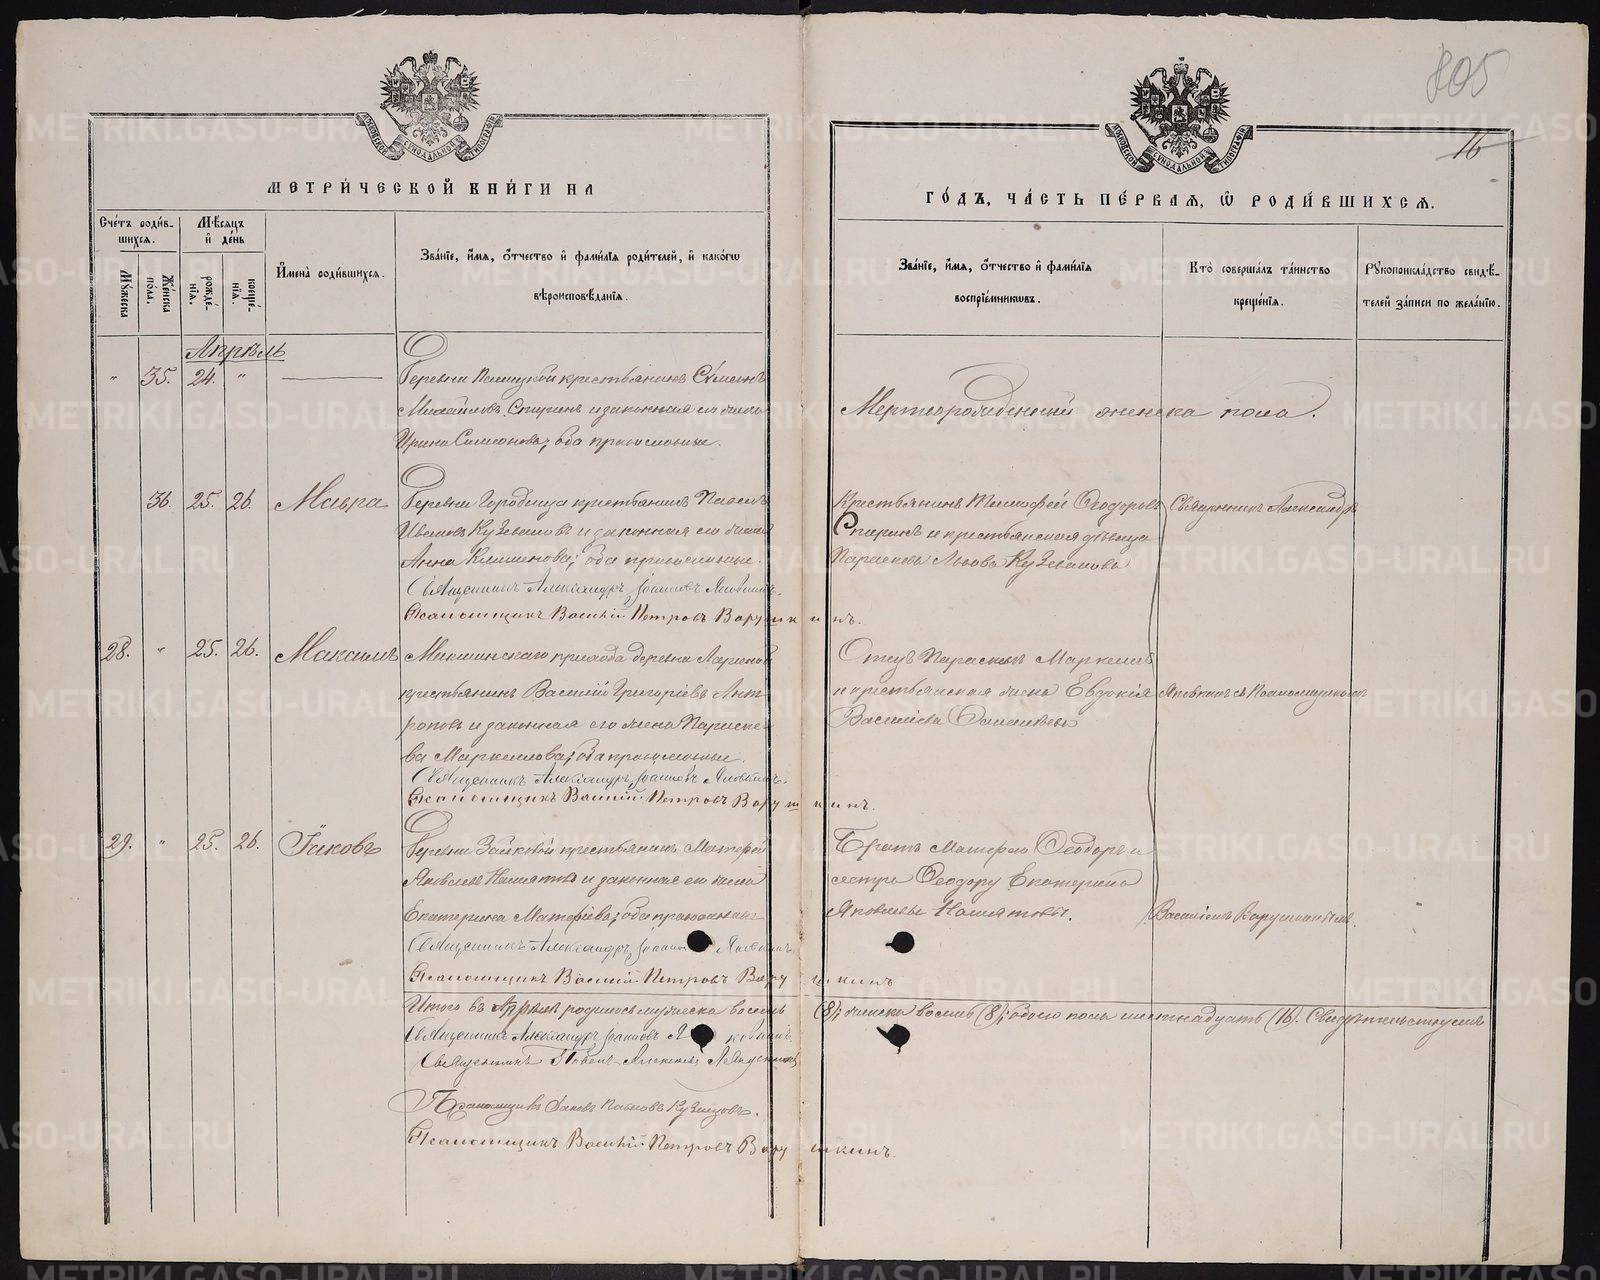 805
16
МОСКОВСКОЙ СѴНОДАЛЬНОЙ ТИПОГРАФІИ
МОСКОВСКОЙ СѴНОДАЛЬНОЙ ТИПОГРАФІИ
МЕТРИ́ЧЕСКОЙ КНИ́ГИ НА
ГО́ДЪ, ЧА́СТЬ ПЕ́РВАЯ, Ѽ РОДИ́ВШИХСЯ.
Сче́тъ роди́в-
шихся.
Мѣ́сяцъ
и҆ де́нь
Мꙋ́жеска
Же́нска
по́ла.
рожде́-
нїя.
креще́-
нїя.
И҆мена̀ роди́вшихся.
Зва́нїе, и҆́мя, ѻ҆́тчество и҆ фами́лїя роди́телей, и҆ како́гѡ
вѣроисповѣ́данїя.
Зва́нїе, и҆́мя, ѻ҆́тчество и҆ фами́лїя
воспрїе́мникѡвъ.
Кто̀ соверша́лъ та́инство
креще́нїя.
Рꙋкоприкла́дство свидѣ́-
телей за́писи по жела́нїю.
Апрѣль
" 35. 24. " Деревни крестьянинъ Сѵмеонъ
Михайловъ Спиринъ и законная его жена
Ирина Симеонова, оба православные.
Мертворожденный женска пола.
36. 25. 26. Мавра Деревни Городища крестьянинъ Павелъ
Ивановъ Кузевановъ и законная его жена
Анна Климентова; оба православные.
Священникъ Александръ Іоанновъ Яковкинъ.
Псаломщикъ Василій Петровъ Варушкинъ.
Крестьянинъ Тимофей Ѳеодоровъ
Спиринъ и крестьянская дѣвица
Параскева Львова Кузеванова
Священникъ Александръ
28. " 25. 26. Максимъ Микшинскаго прихода деревни
крестьянинъ Василій Григоріевъ Ант-
роповъ и законная его жена Параске-
ва Маркеллова; оба православные.
Священникъ Александръ Іоанновъ Яковкинъ.
Псаломщикъ Василій Петровъ Варушкинъ.
Отецъ Параскевы Маркеллъ
и крестьянская жена Евдокія
Василіева
Яковкинъ съ Псаломщикомъ
29. " 25. 26. Іаковъ Деревни Зайковой крестьянинъ Матѳей
Яковлевъ и законная его жена
Екатерина Матѳіева; оба православные
Священникъ Александръ Іоанновъ Яковкинъ.
Псаломщикъ Василій Петровъ Варушкинъ
Братъ Матѳею Ѳеодоръ и
сестра Ѳеодору Екатерина
Яковлевы
Василіемъ Варушкинымъ.
Итого въ Апрѣлѣ родилось мужеска восемь (8); женска восемь (8); обоего пола шестнадцать (16). Свидѣтельствуемъ
Священникъ Александръ Іоанновъ Яковкинъ.
Священникъ Павелъ
Псаломщикъ Іаковъ Павловъ Кузнецовъ.
Псаломщикъ Василій Петровъ Варушкинъ.
METRIKI.GASO-URAL.RU